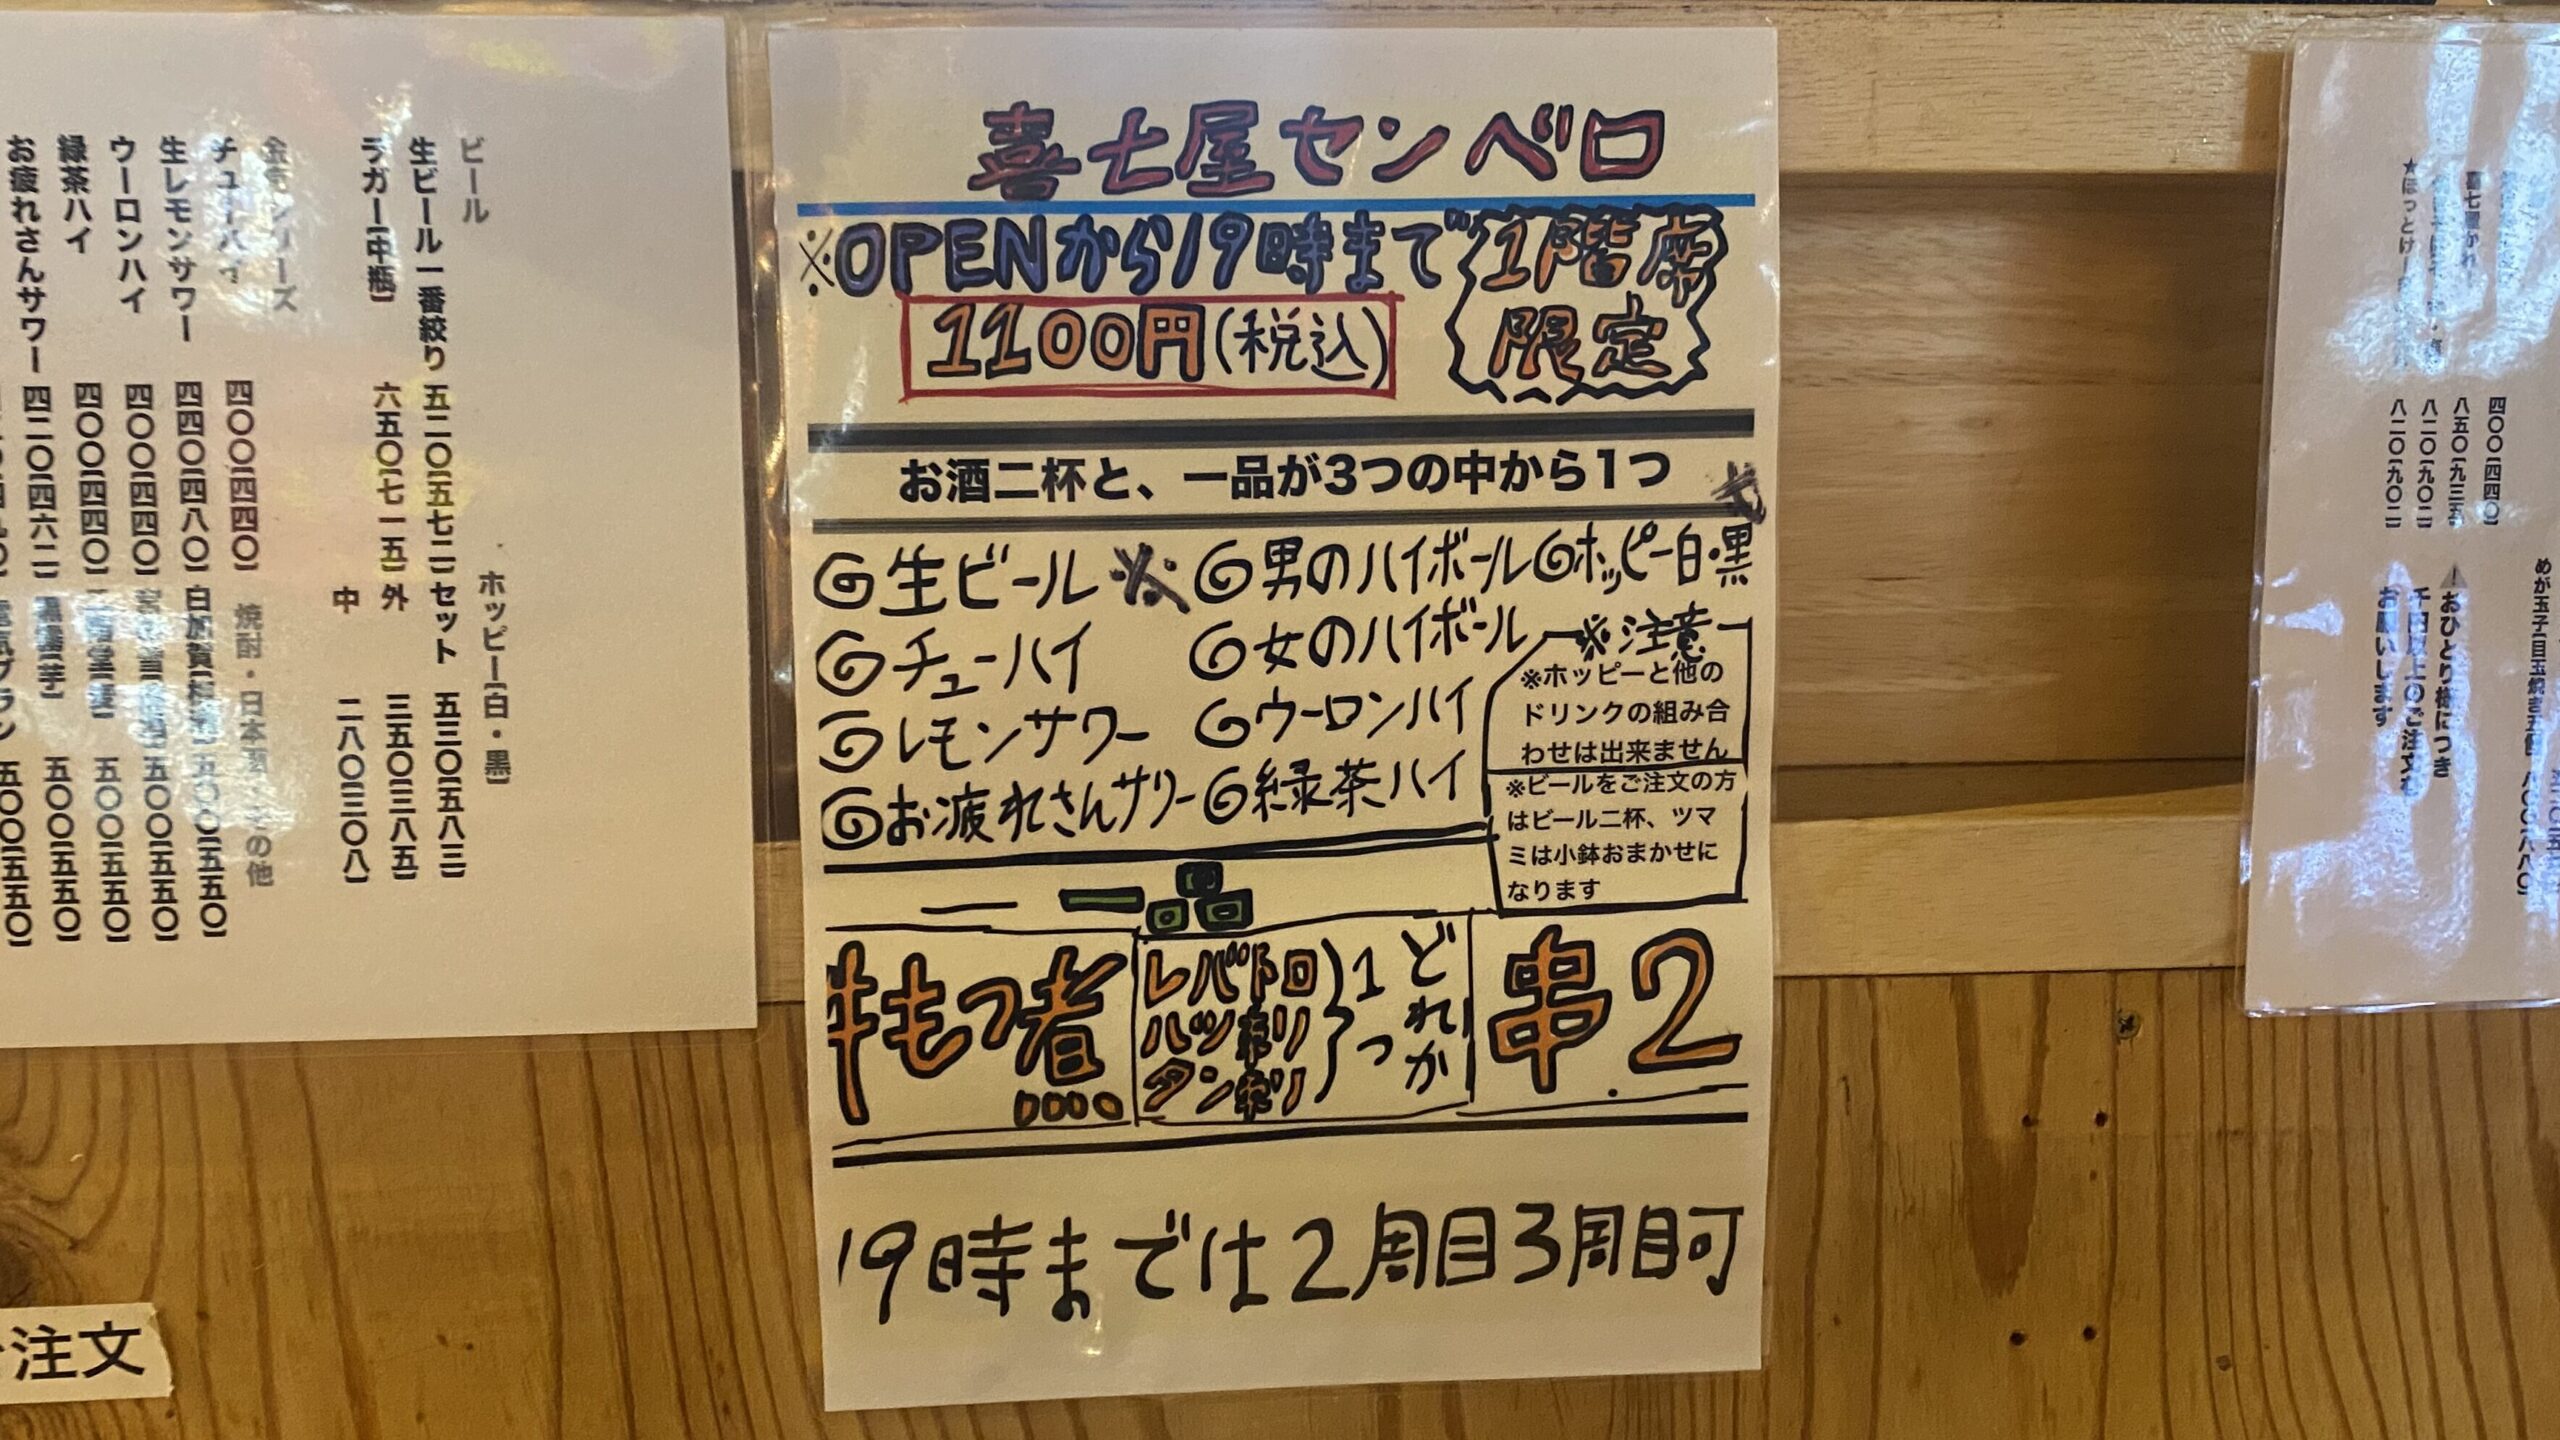 喜七屋センベロ
※OPENから19時まで
1階席
限定
1100円(税込)
お酒二杯と、一品が3つの中から1つ
生ビール※
男のハイボール
ホッピー白・黒
チューハイ
女のハイボール
レモンサワー
ウーロンハイ
お疲れさんサワー
緑茶ハイ
※注意
※ホッピーと他の
ドリンクの組み合
わせは出来ません
※ビールをご注文の方
はビール二杯、ツマ
ミは小鉢おまかせに
なります
一品
牛もつ煮
レバトロ
ハツ刺リ
タン刺リ
どれか
1つ
串2
19時までは2周目3周目可
ビール
生ビール一番絞り 五二〇〔五七二〕
ラガー〔中瓶〕 六五〇〔七一五〕
チューハイ 四〇〇〔四四〇〕
生レモンサワー 四四〇〔四八〇〕
ウーロンハイ 四〇〇〔四四〇〕
緑茶ハイ 四〇〇〔四四〇〕
お疲れさんサワー 四二〇〔四六二〕
ホッピー〔白・黒〕
セット 五三〇〔五八三〕
外 三五〇〔三八五〕
中 二八〇〔三〇八〕
焼酎・日本酒・その他
五〇〇〔五五〇〕
五〇〇〔五五〇〕
五〇〇〔五五〇〕
五〇〇〔五五〇〕
五〇〇〔五五〇〕
四〇〇〔四四〇〕
八五〇〔九三五〕
八二〇〔九〇二〕
八二〇〔九〇二〕
おひとり様につき
千円以上のご注文を
お願いします
注文